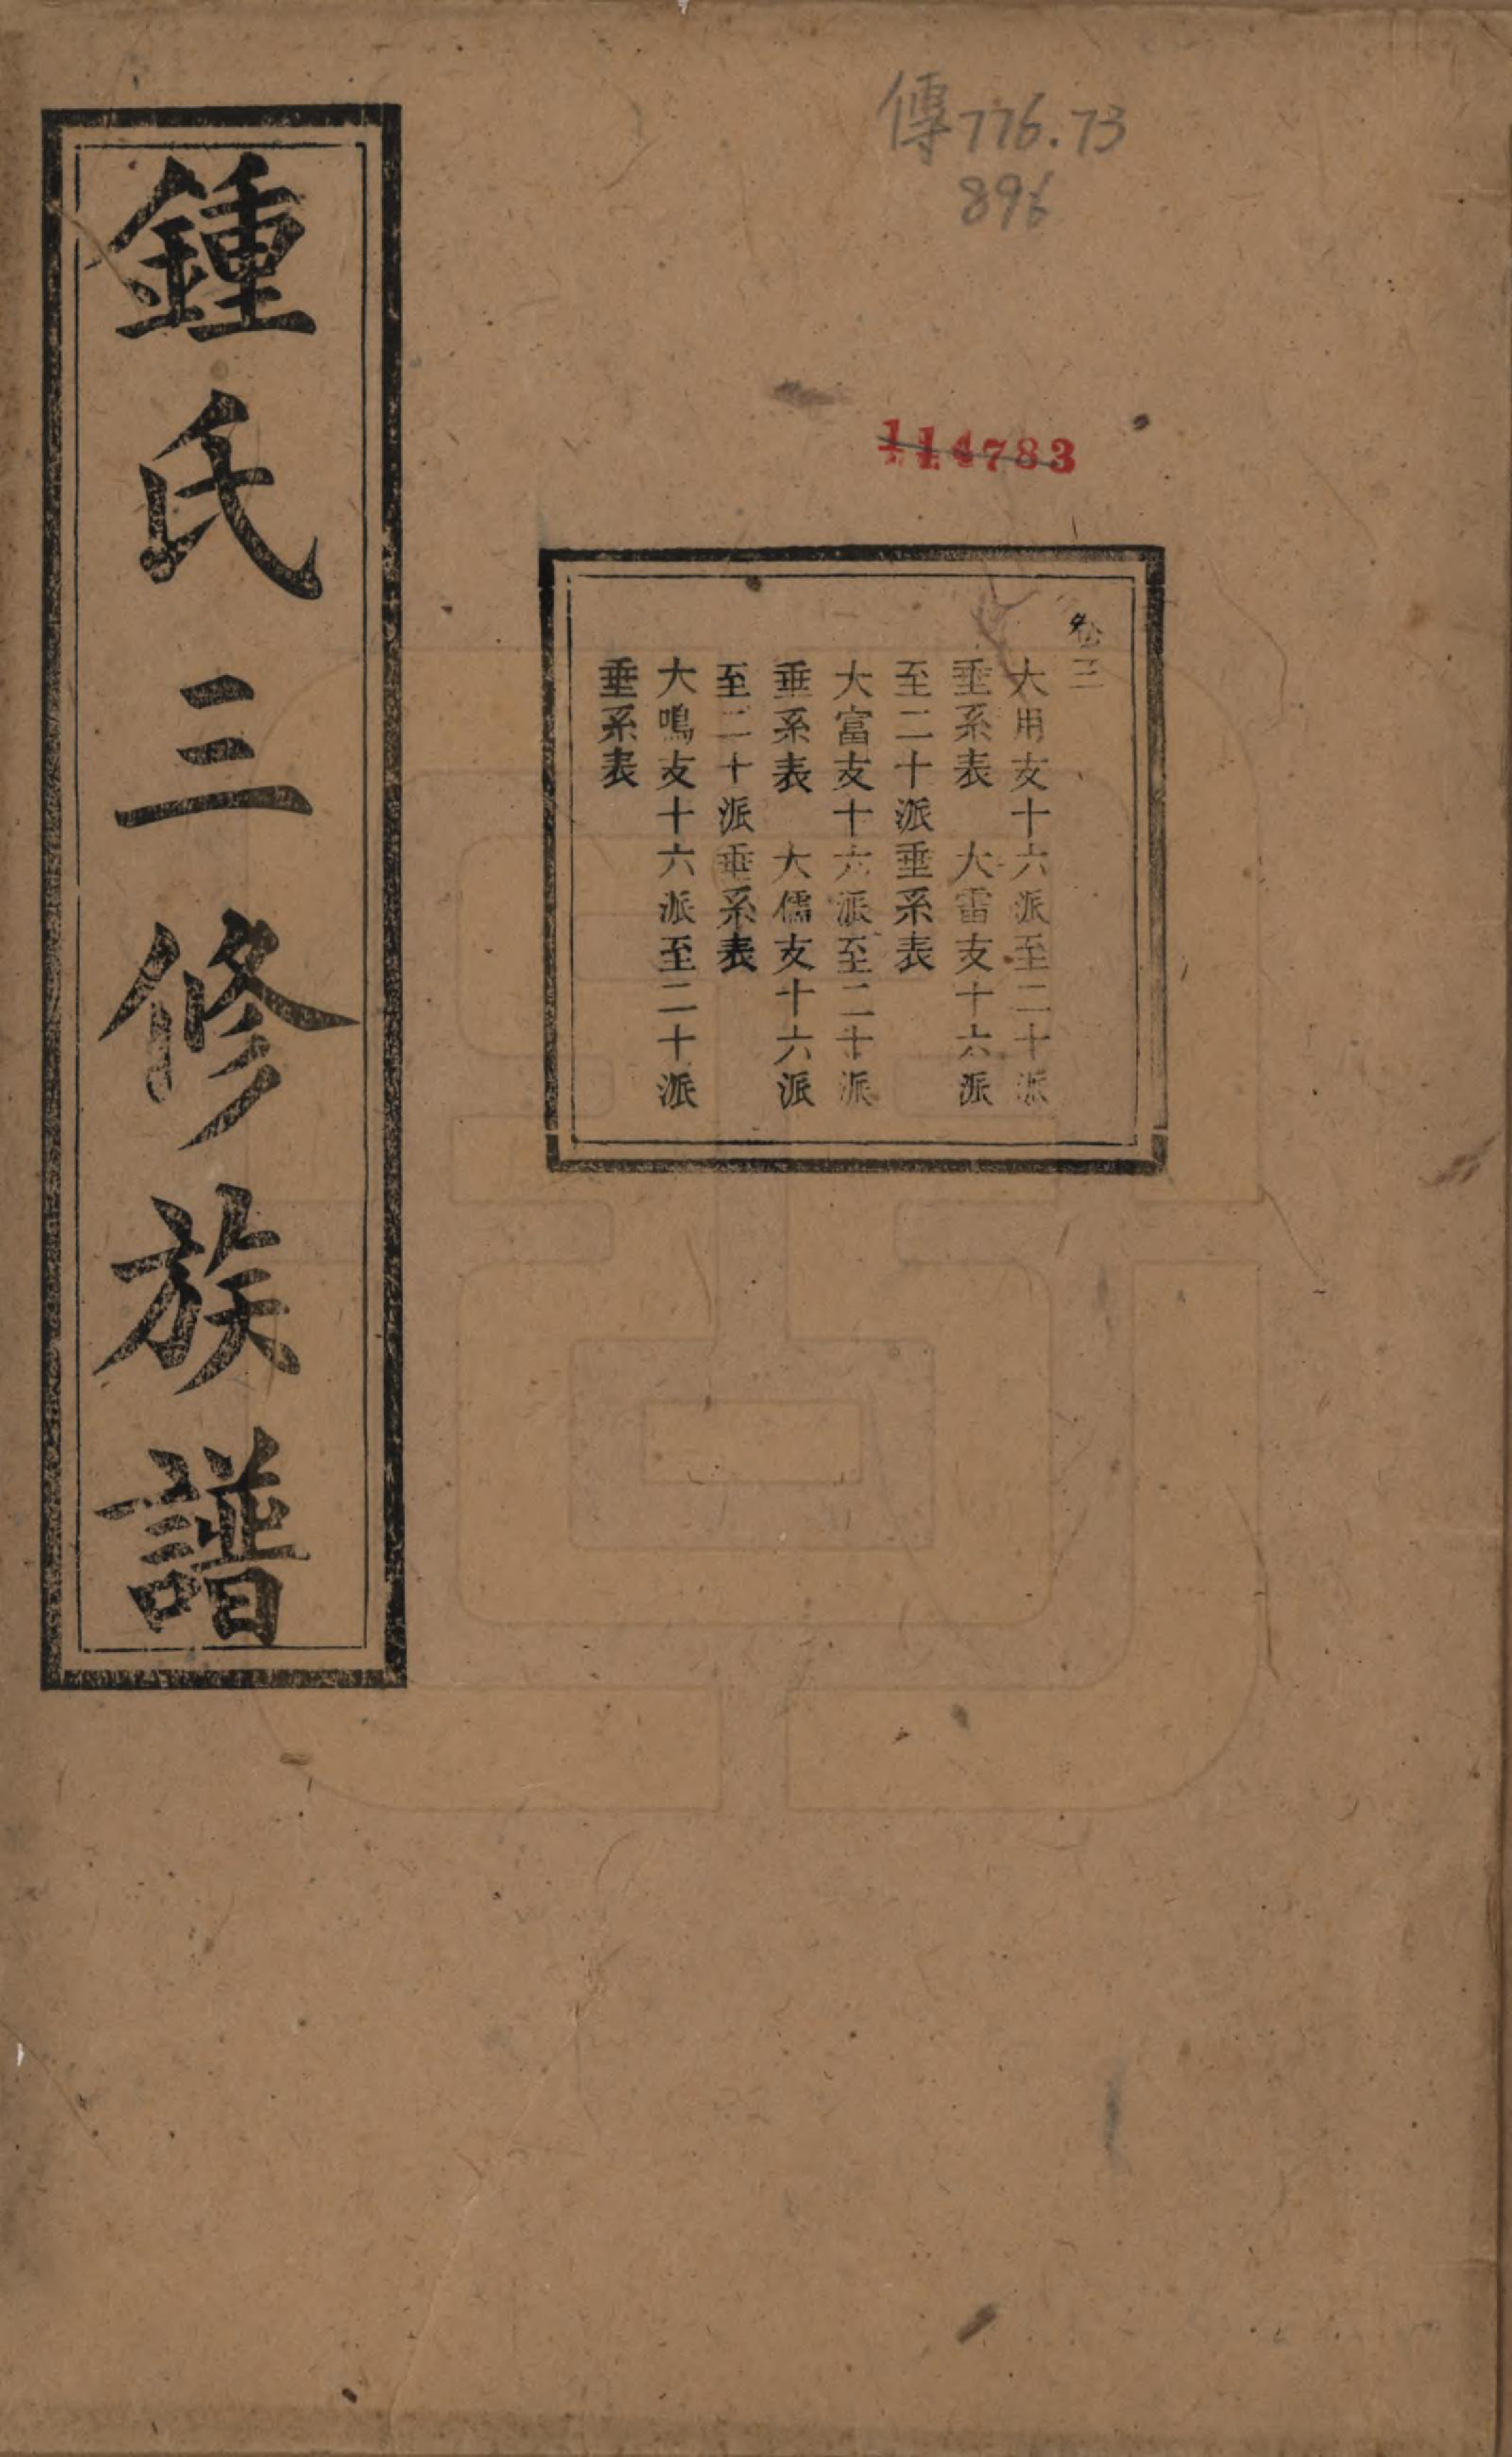 傳776.73
896
114783
卷三
大用支十六派至二十派
垂系表　大雷支十六派
至二十派垂系表
大富支十六派至二十派
垂系表　大儒支十六派
至二十派垂系表
大鳴支十六派至二十派
垂系表
鍾氏三修族譜